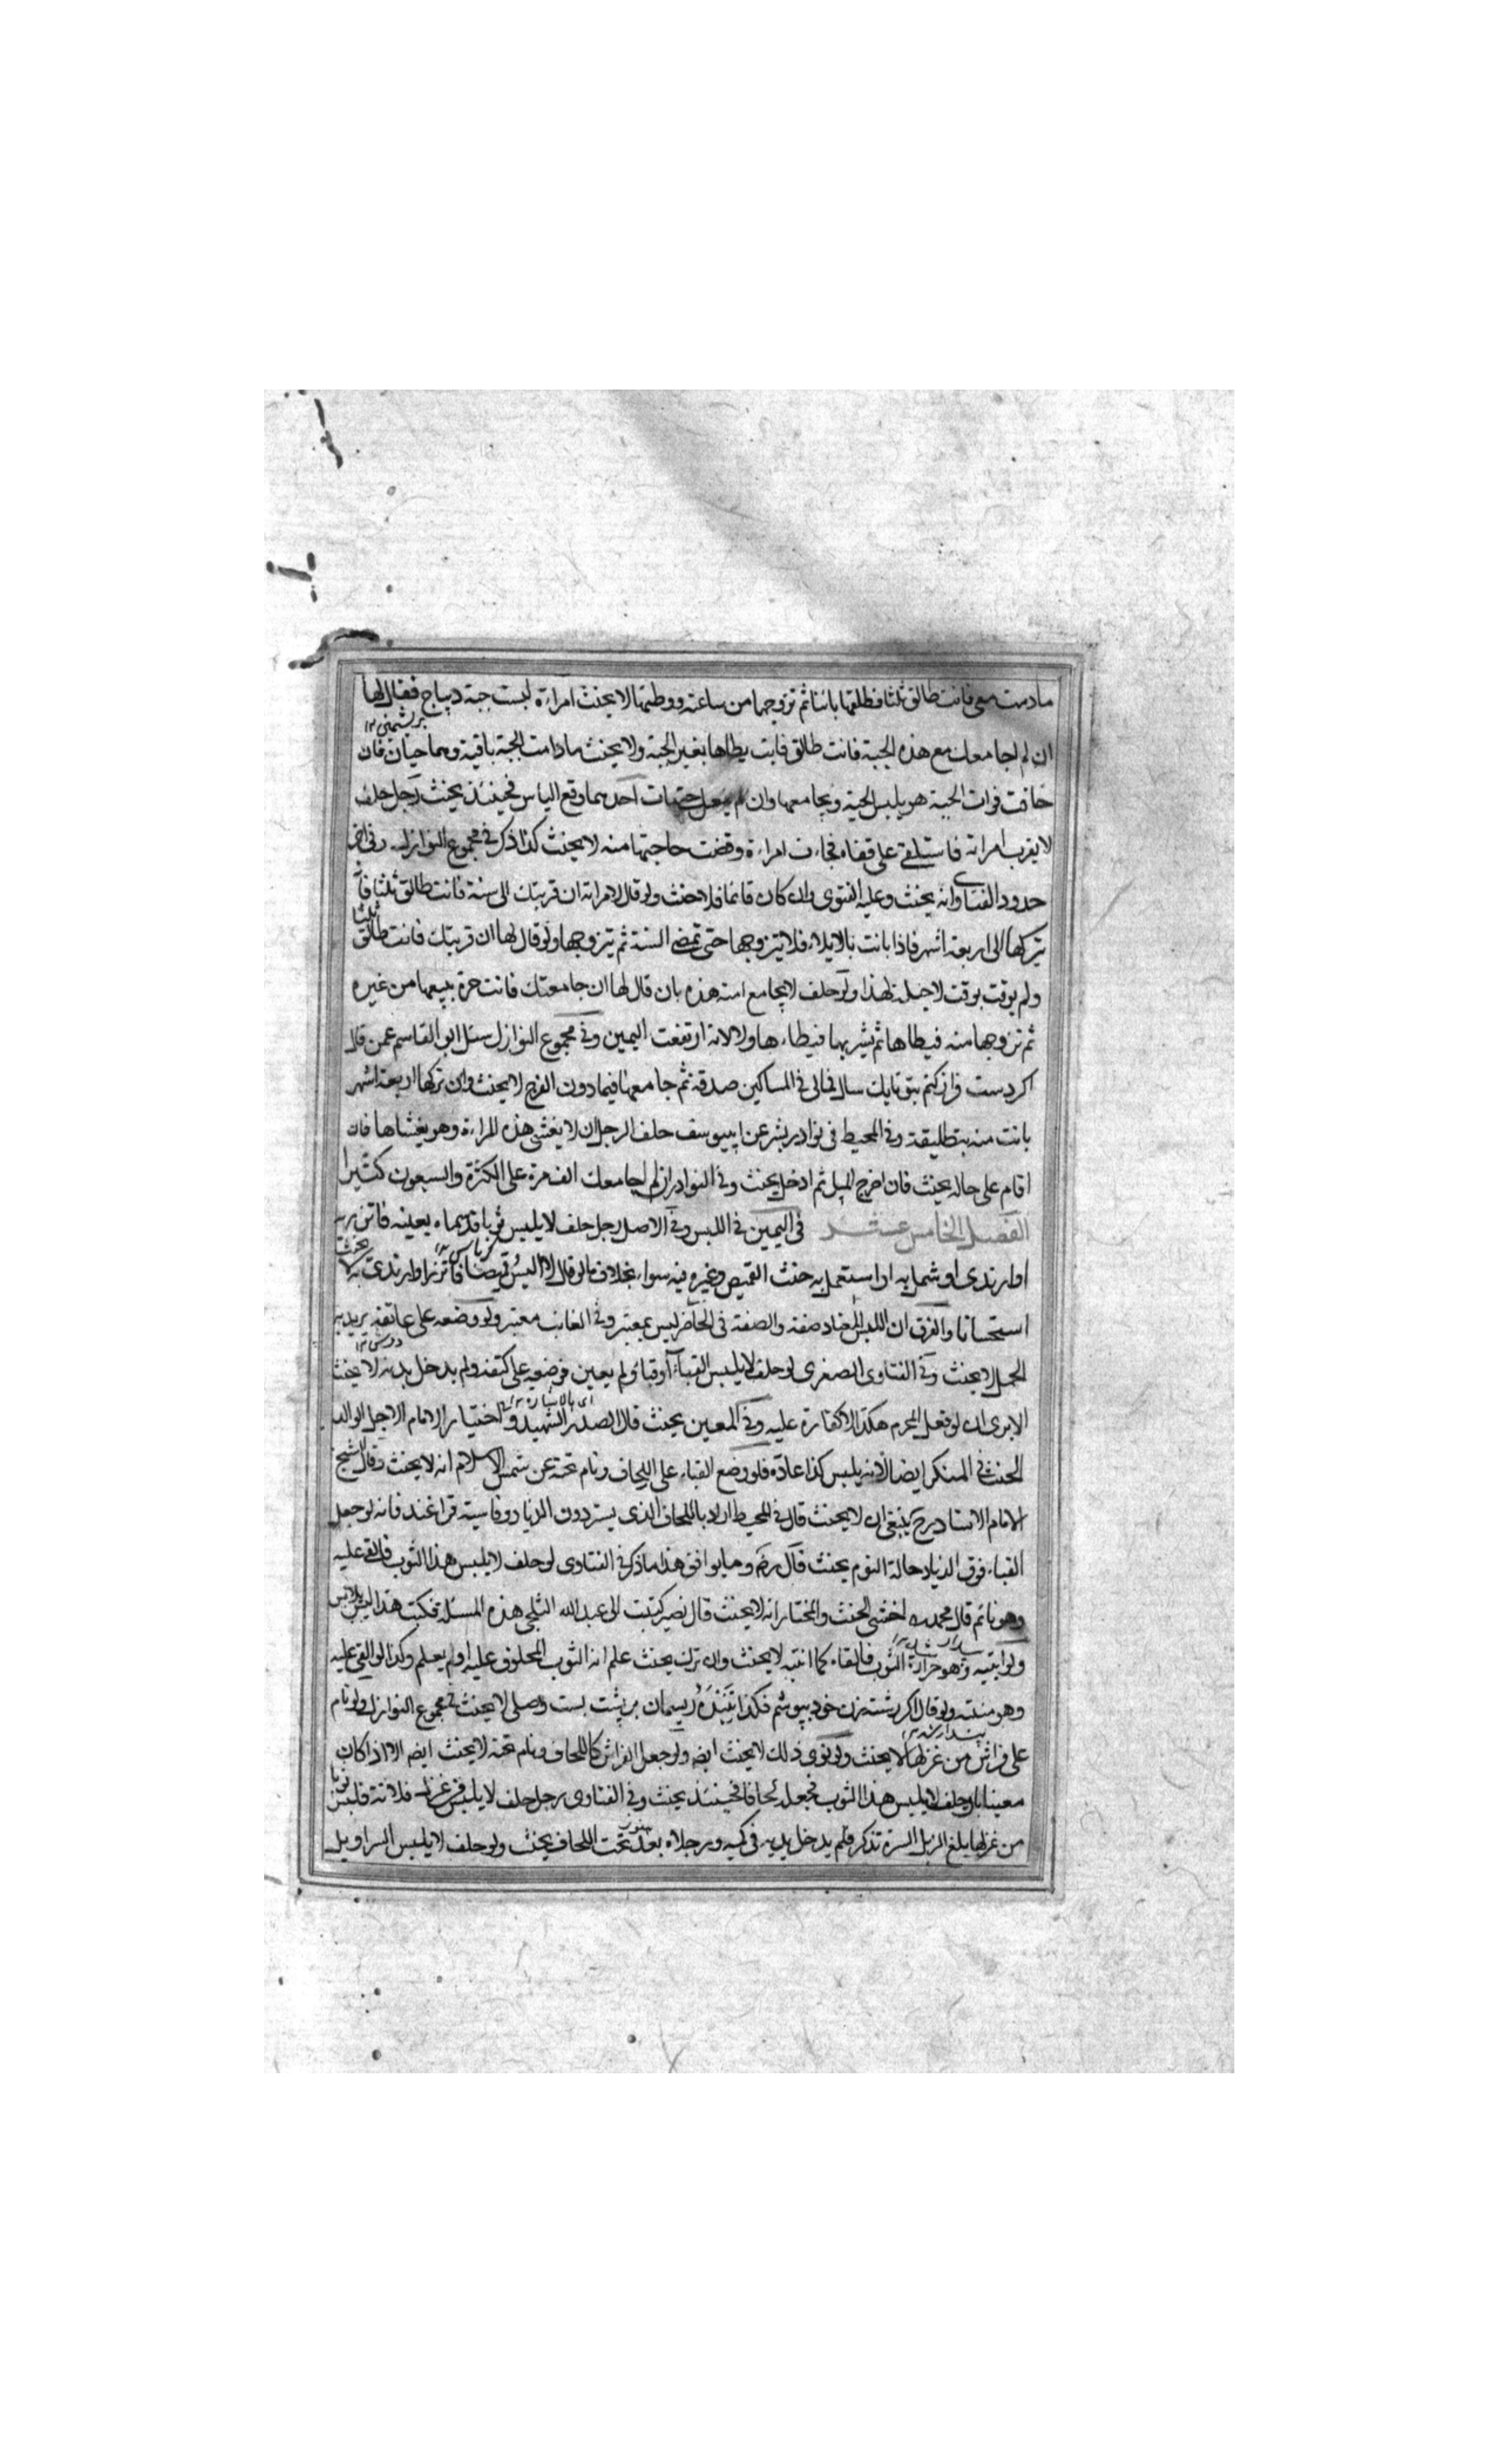 مادمت معي فانت طالق ثلثا فطلقها بائنا ثم تزوجها من ساعته ووطئها لا يحنث امراءة لبست جبة ديباج فقال لها
ان لم اجامعك مع هذه الجبة فانت طالق فابت يطاها بغير الجبة ولا يحنث مادامت الجبة باقية وهما حيان فان
خافت فوات الجبة هو يلبس الجبة ويجامعها وان لم يفعل حتى مات احدهما وقع الياس فحينئذ يحنث رجل حلف
لا يقرب امراته فاستلقى على قفاه فجاءت امراءة وقضت حاجتها منه لا يحنث كذا ذكر في مجموع النوازل وفي اخر
حدود الفتاوى انه يحنث وعليه الفتوى وان كان قائما فلا حنث ولو قال لامراته ان قربتك الى سنة فانت طالق ثلثا
يتركها الى اربعة اشهر فاذا بانت بالايلاء فلا يتزوجها حتى تمضي السنة ثم يتزوجها ولو قال لها ان قربتك فانت طالق ثلثا
ولم يوقت بوقت لا حيلة لهذا ولو حلف لا يجامع امته هذه بان قال لها ان جامعتك فانت حرة يبيعها من غيره
ثم تزوجها منه فيطاها ثم يشتريها فيطاءها ولا لانه ارتفعت اليمين وفي مجموع النوازل سئل ابو القاسم عمن قال
اكر دست فراز كنم بتو تا يك سال فمالي في المساكين صدقة ثم جامعها فيما دون الفرج لا يحنث وان تركها اربعة اشهر
بانت منه بتطليقة وفي المحيط في نوادر بشر عن ابي يوسف حلف الرجل ان لا يغشى هذه المراءة وهو يغشاها فان
اقام على حاله يحنث فان اخرج الميل ثم ادخل يحنث وفي النوادر ان لم اجامعك الف مرة على الكثرة والسبعون كثيرا
الفصل الخامس عشر في اليمين في اللبس وفي الاصل رجل حلف لا يلبس ثوبا قد سماه بعينه فاتزر به
او ارتدى او شمل به او استعمل به حنث القميص وغيره فيه سواء بخلاف ما لو قال لا البس قميصا فاتزر او ارتدى به لا يحنث
استحسانا والفرق ان اللبس المعتاد صفة والصفة في الحاضر ليس بمعتبر وفي الغائب معتبر ولو وضعه على عاتقه يريد به
الحمل لا يحنث وفي الفتاوى الصغرى لو حلف لا يلبس القباء او قباء ولم يعين فوضعه على كتفه ولم يدخل يديه لا يحنث
الا يرى ان لو فعل المحرم هكذا لا كفارة عليه وفي المعين يحنث قال الصدر الشهيد واختيار الامام الاجل الوالد
الحنث في المنكر ايضا لانه يلبس كذا عادة فلو وضع القباء على اللحاف ونام تحته عن شمس الاسلام انه لا يحنث وقال الشيخ
الامام الاستاد رح ينبغي ان لا يحنث قال في المحيط اراد باللحاف الذي يستر دون الدثار وفارسيته قزاغند فانه لو جعل
القباء فوق الدثار حالة النوم يحنث قال رضه وما يوافق هذا ما ذكر في الفتاوى لو حلف لا يلبس هذا الثوب فالقى عليه
وهو نائم قال محمد رح اخشى الحنث والمختار انه لا يحنث قال نصير كتبت الى عبد الله الثلجي هذه المسئلة فكتب هذا ليس بلابس
ولو انتبه وهو حرارة الثوب فالقاه كما انتبه لا يحنث وان ترك يحنث علم انه الثوب المحلوف عليه او لم يعلم وكذا لو القي عليه
وهو منتبه ولو قال اكر رشته زن خود بپوشم فكذا ريسمان بر پشت بست وصلى لا يحنث في مجموع النوازل ولو نام
على فراش من غزلها لا يحنث ولو نوى ذلك لا يحنث ايضه ولو جعل الفراش كاللحاف ونام تحته لا يحنث ايضه الا اذا كان
معينا بان حلف لا يلبس هذا الثوب فجعله لحافا فحينئذ يحنث وفي الفتاوى رجل حلف لا يلبس من غزل فلانة فلبس ثوبا
من غزلها يبلغ الذيل السرة تذكر فلم يدخل يديه في كميه ورجلاه بعد تحت اللحاف يحنث ولو حلف لا يلبس السراويل